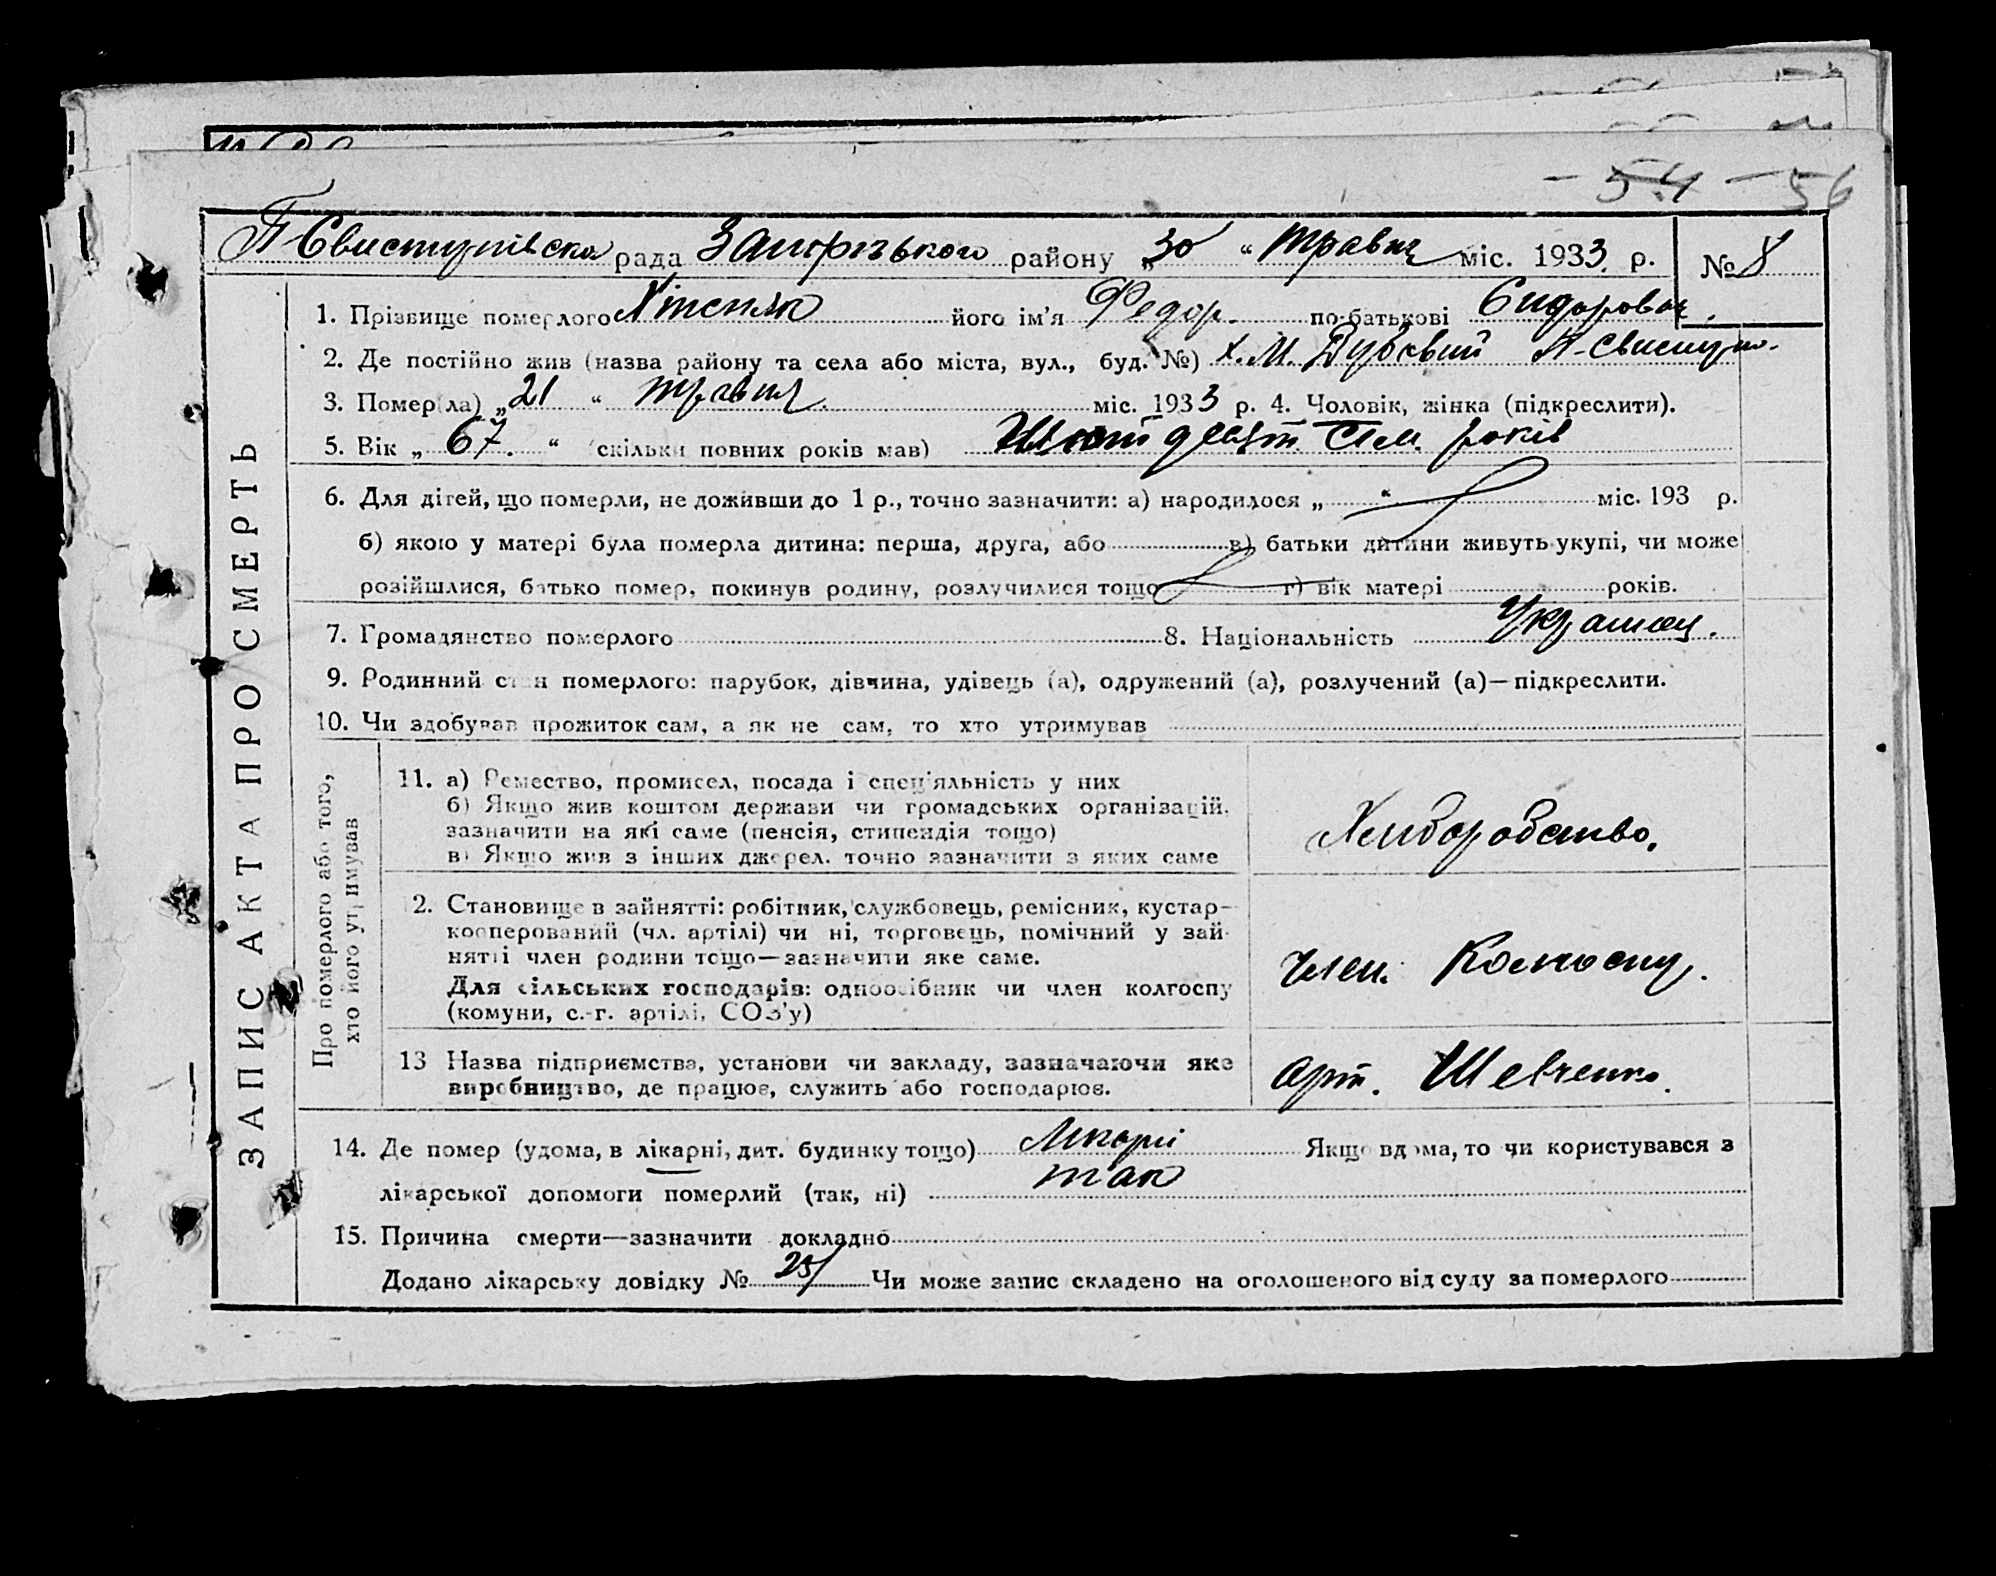 - 54 - 56
П-Свистунівська рада Запорізького району „30“ травня міс. 1933 р. № 8
1. Прізвище померлого його ім'я Федор. по-батькові Сидорович.
2. Де постійно жив (назва району та села або міста, вул., буд. №) х. М. Дубовий П-Свистун.
3. Помер(ла) „21“ травня міс. 1933 р. 4. Чоловік, жінка (підкреслити).
5. Вік „67.“ (скільки повних років мав) Шістдесят сім років
6. Для дітей, що померли, не доживши до 1 р., точно зазначити: а) народилося „ “ міс. 193 р.
б) якою у матері була померла дитина: перша, друга, або в) батьки дитини живуть укупі, чи може
розійшлися, батько помер, покинув родину, розлучилися тощо г) вік матері років.
7. Громадянство померлого 8. Національність Украинец.
9. Родинний стан померлого: парубок, дівчина, удівець (а), одружений (а), розлучений (а)—підкреслити.
10. Чи здобував прожиток сам, а як не сам, то хто утримував
ЗАПИС АКТА ПРО СМЕРТЬ
Про померлого або того,
хто його утримував
11. а) Ремество, промисел, посада і спец'яльність у них
б) Якщо жив коштом держави чи громадських організацій,
зазначити на які саме (пенсія, стипендія тощо)
в) Якщо жив з інших джерел, точно зазначити з яких саме
Хлиборобство.
2. Становище в зайнятті: робітник, службовець, ремісник, кустар-
кооперований (чл. артілі) чи ні, торговець, помічний у зай-
нятті член родини тощо—зазначити яке саме.
Для сільських господарів: одноосібник чи член колгоспу
(комуни, с.-г. артілі, СОЗ'у)
член Колгоспу.
13 Назва підприємства, установи чи закладу, зазначаючи яке
виробництво, де працює, служить або господарює.
Арт. Шевченко.
14. Де помер (удома, в лікарні, дит. будинку тощо) Лікарні Якщо вдома, то чи користувався з
лікарської допомоги померлий (так, ні) так
15. Причина смерти—зазначити докладно
Додано лікарську довідку № 25/ Чи може запис складено на оголошеного від суду за померлого